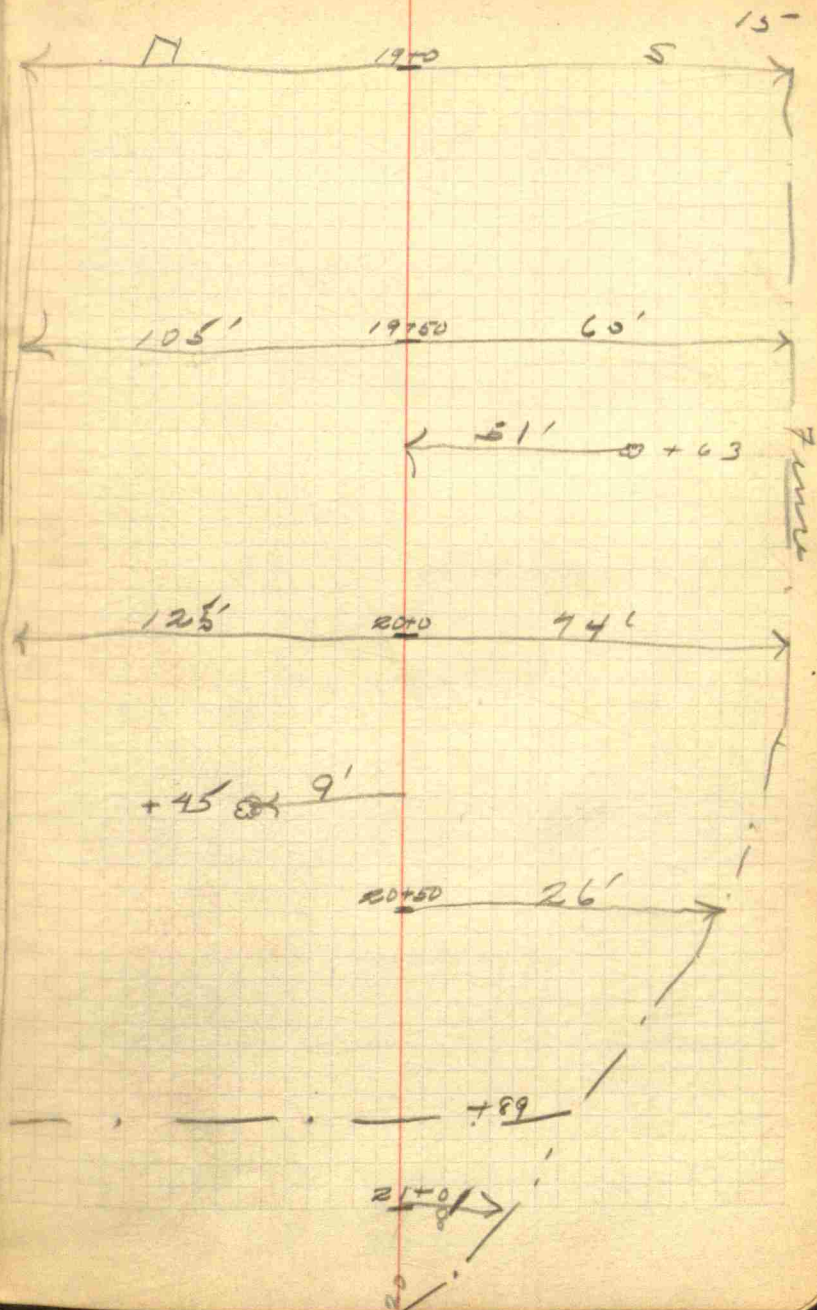 15
N 19+0 S
105' 19+50 60'
51' + 63
125' 20+0 44'
+45 9'
20+50 26'
+89
21+0
8'
20